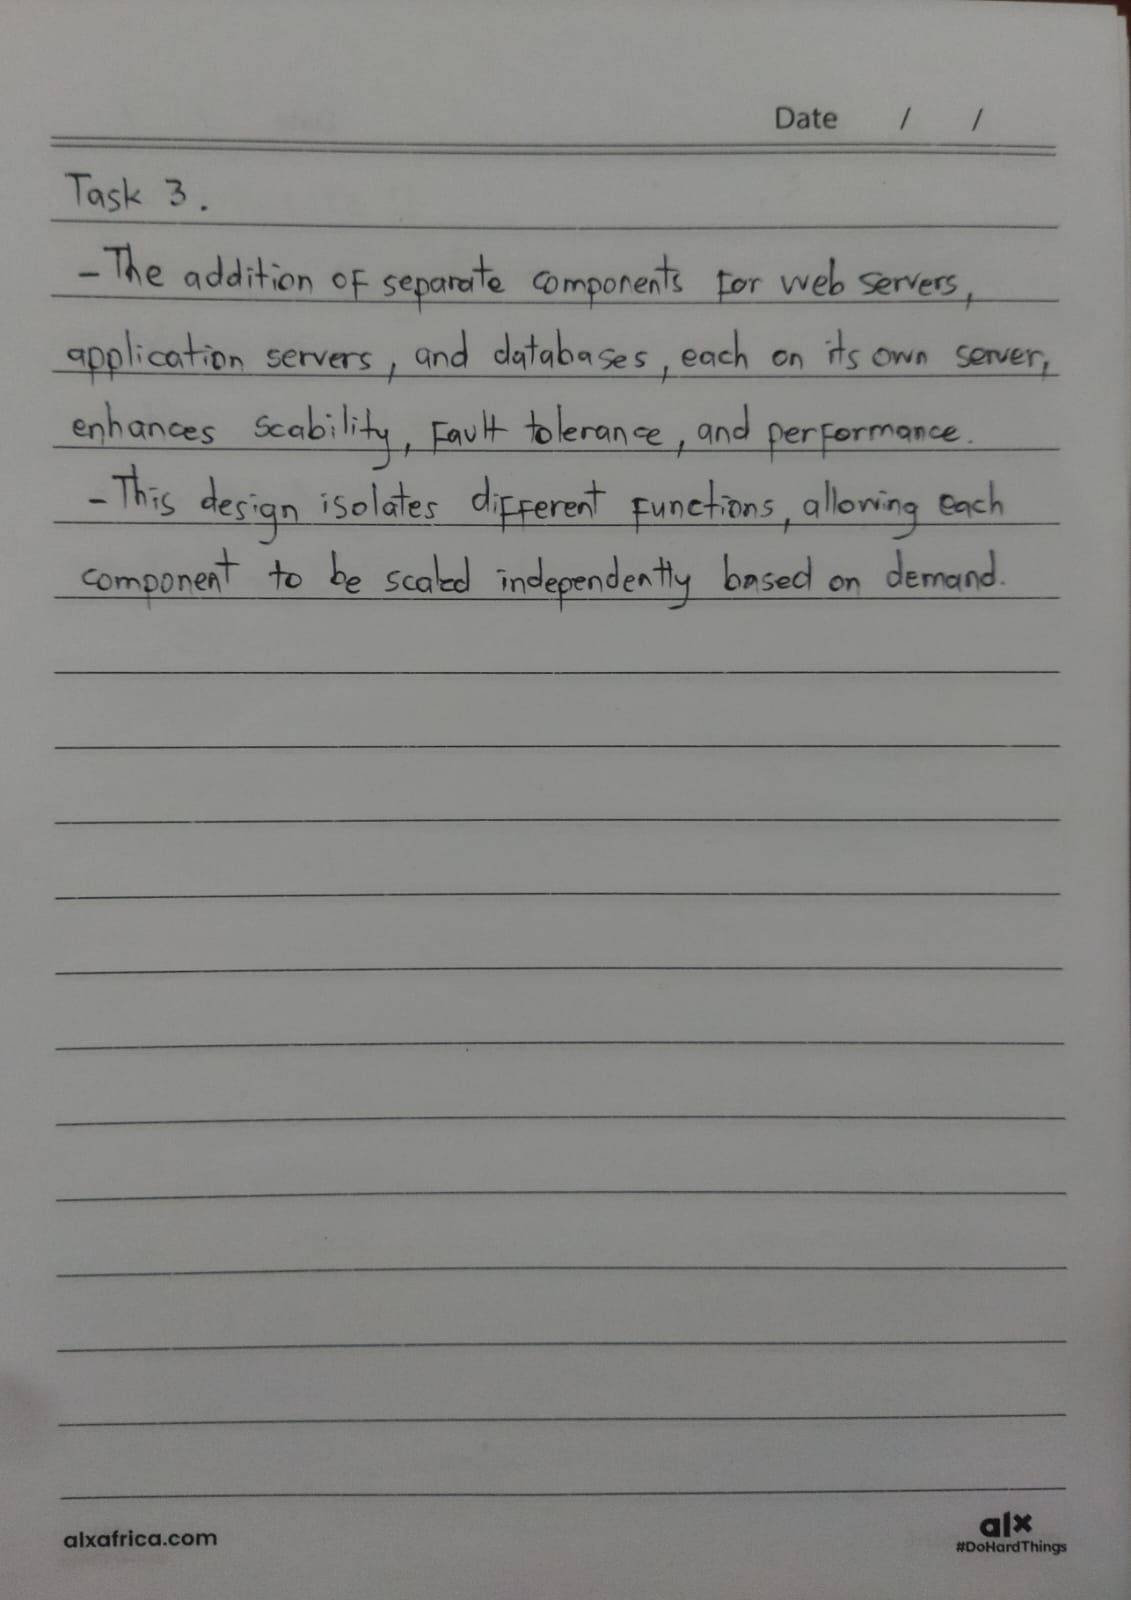 Date / /
Task 3.
- The addition of separate components for web servers,
application servers, and databases, each on its own server,
enhances scability, fault tolerance, and performance.
- This design isolates different functions, allowing each
component to be scaled independently based on demand.
alxafrica.com
alx
#DoHardThings